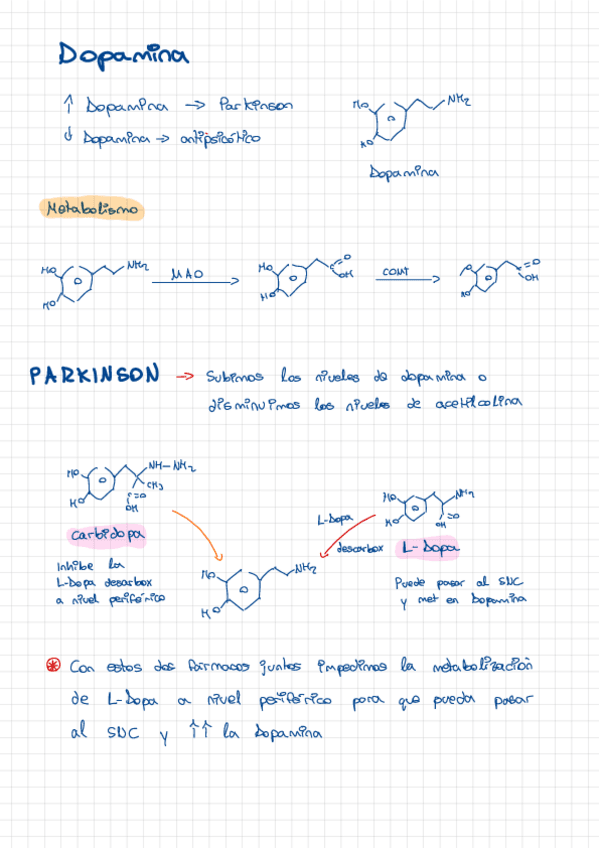 Dopamina
↑ Dopamina → Parkinson
↓ Dopamina → antipsicótico
HO NH2
HO
Dopamina
Metabolismo
HO NH2 MAO HO =O OH COMT O =O OH
HO HO HO
PARKINSON → Subimos los niveles de dopamina o
disminuimos los niveles de acetilcolina
HO NH-NH2
CH3
HO =O
OH
HO NH2
HO =O
OH
Carbidopa
L-Dopa
descarbox L-Dopa
Inhibe la
L-Dopa desarbox
a nivel periférico
HO NH2
HO
Puede pasar al SNC
y met en Dopamina
* Con estos dos fármacos juntos impedimos la metabolización
de L-Dopa a nivel periférico para que pueda pasar
al SNC y ↑↑ la Dopamina